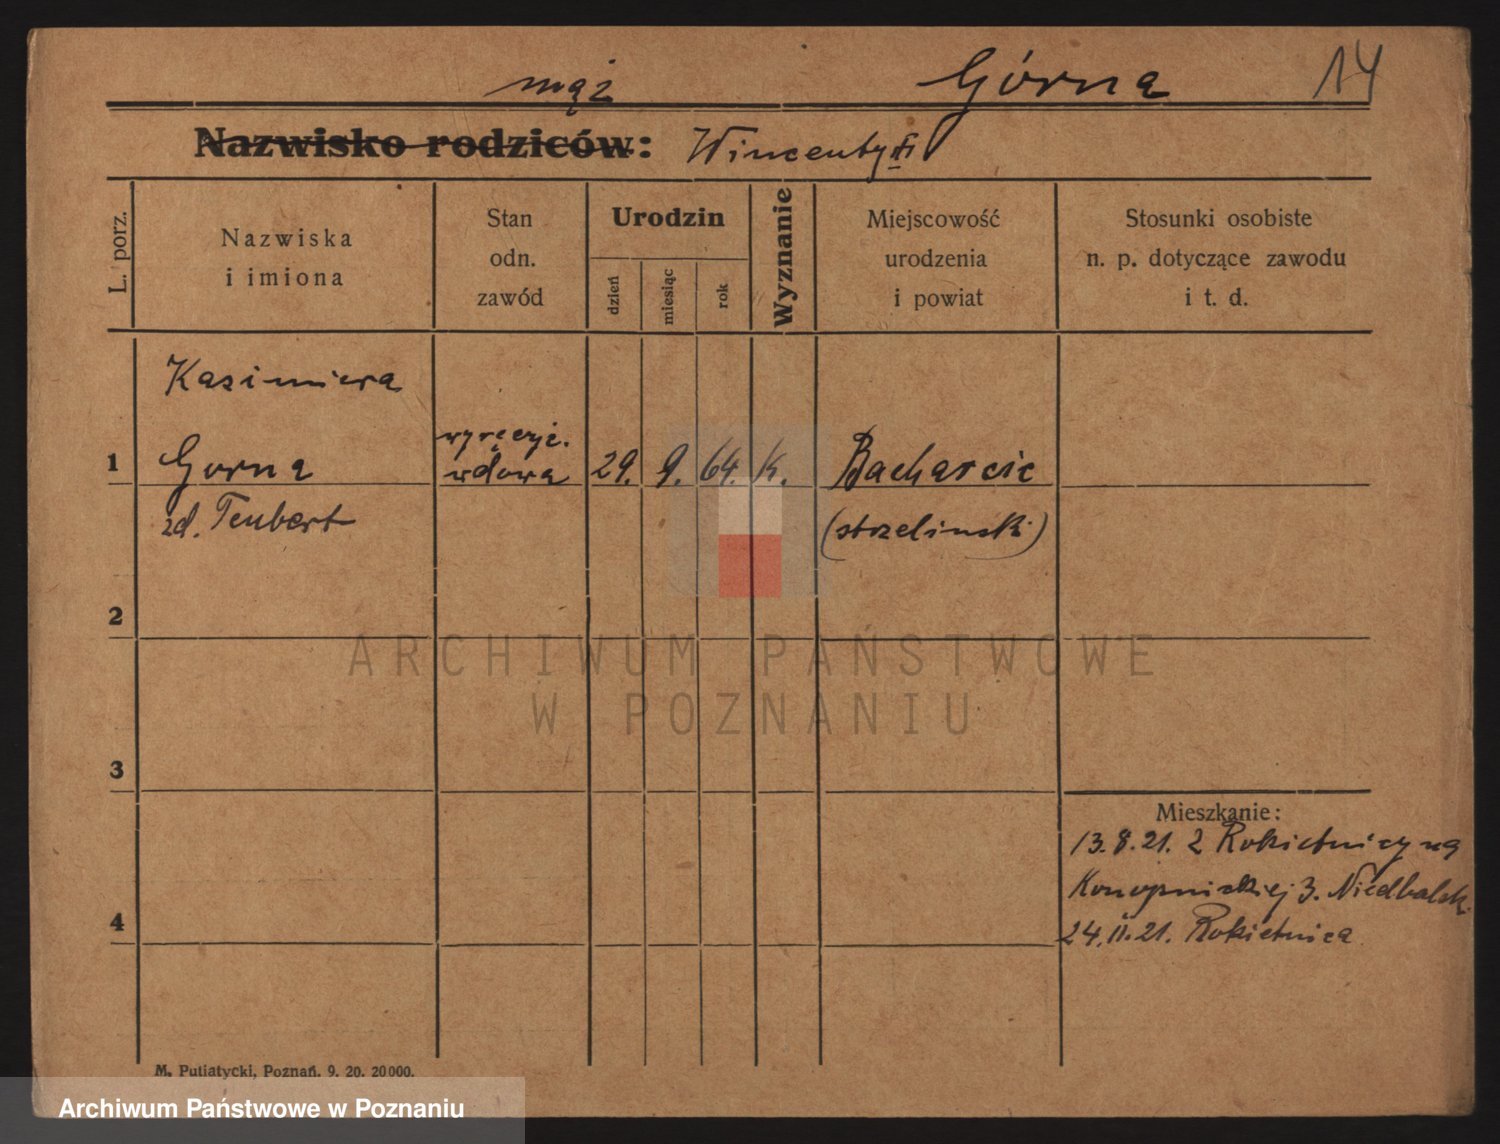 mąż Górna 14
Nazwisko rodziców: Wincenty
L. porz.
Nazwiska
i imiona
Stan
odn.
zawód
Urodzin
dzień
miesiąc
rok
Wyznanie
Miejscowość
urodzenia
i powiat
Stosunki osobiste
n. p. dotyczące zawodu
i t. d.
Kazimiera
1 Gorna wdowa 29. 9. 64. K.
zd. Teubert
(strzelinski)
2
3
4
Mieszkanie:
13.8.21. z Rokietnicy na
Konopnickiej 3. Niedbalsk.
24.II.21. Rokietnica
M. Putiatycki, Poznań. 9. 20. 20000.
ARCHIWUM PAŃSTWOWE
W POZNANIU
Archiwum Państwowe w Poznaniu